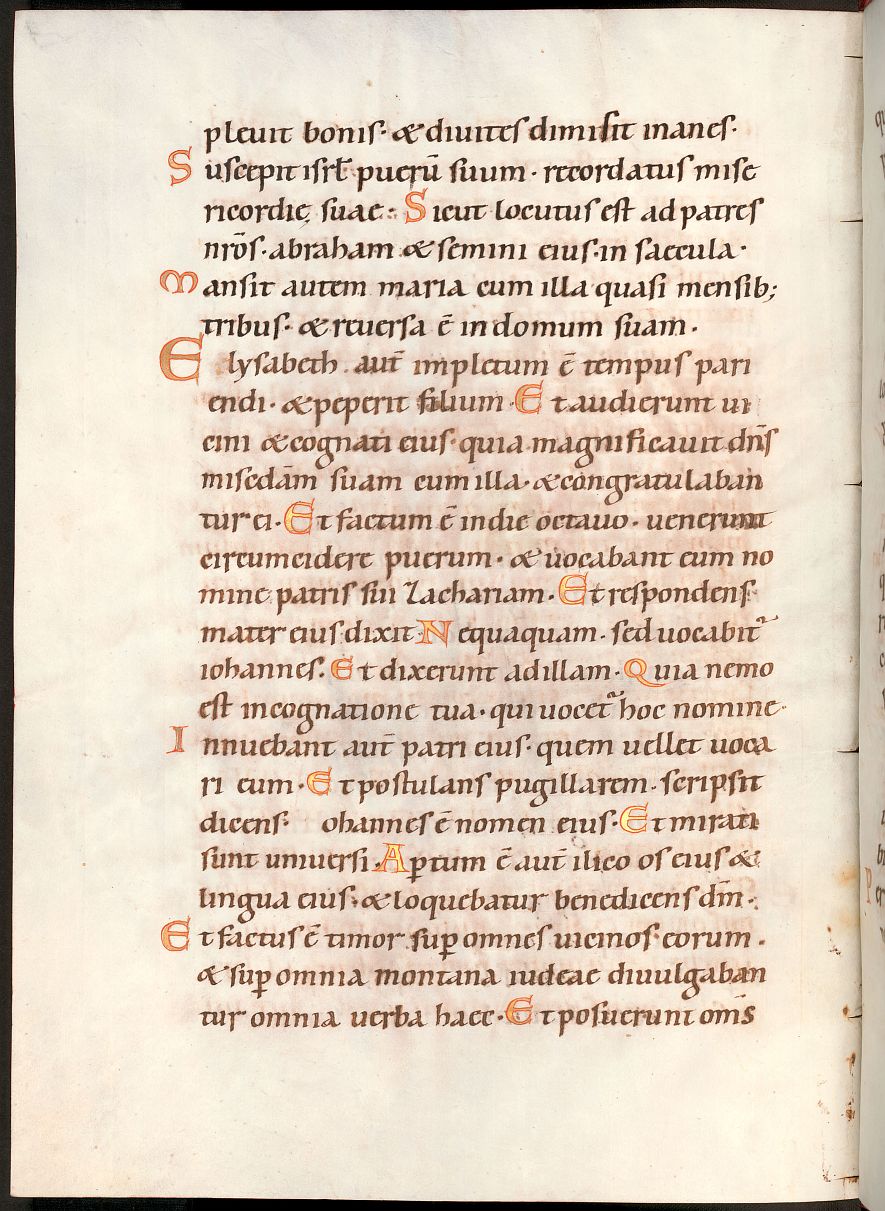 pleuit bonis· & diuites dimisit inanes·
Suscepit isrl̄ puerū suum· recordatus mise
ricordię suae· Sicut locutus est ad patres
nr̄os· abraham & semini eius· in saecula·
Mansit autem maria cum illa quasi mensib;
tribus· & reuersa ē in domum suam·
Elysabeth aut̄ impletum ē tempus pari
endi· & peperit filium· Et audierunt ui
cini & cognati eius· quia magnificauit dn̄s
misc̄dam suam cum illa· & congratulaban
tur ei· Et factum ē in die octauo· uenerunt
circumcidere puerum· & uocabant eum no
mine patris sui Zachariam· Et respondens
mater eius dixit· Nequaquam· sed uocabit᷑
iohannes· Et dixerunt ad illam· Quia nemo
est in cognatione tua· qui uocet᷑ hoc nomine·
Innuebant aut̄ patri eius· quem uellet uoca
ri eum· Et postulans pugillarem· scripsit
dicens· ohannes ē nomen eius· Et mirati
sunt uniuersi· Aꝑtum ē aut̄ ilico os eius &
lingua eius· & loquebatur benedicens dm̄·
Et factus ē timor suꝑ omnes uicinos eorum·
& suꝑ omnia montana iudeae diuulgaban
tur omnia uerba haec· Et posuerunt om̄s